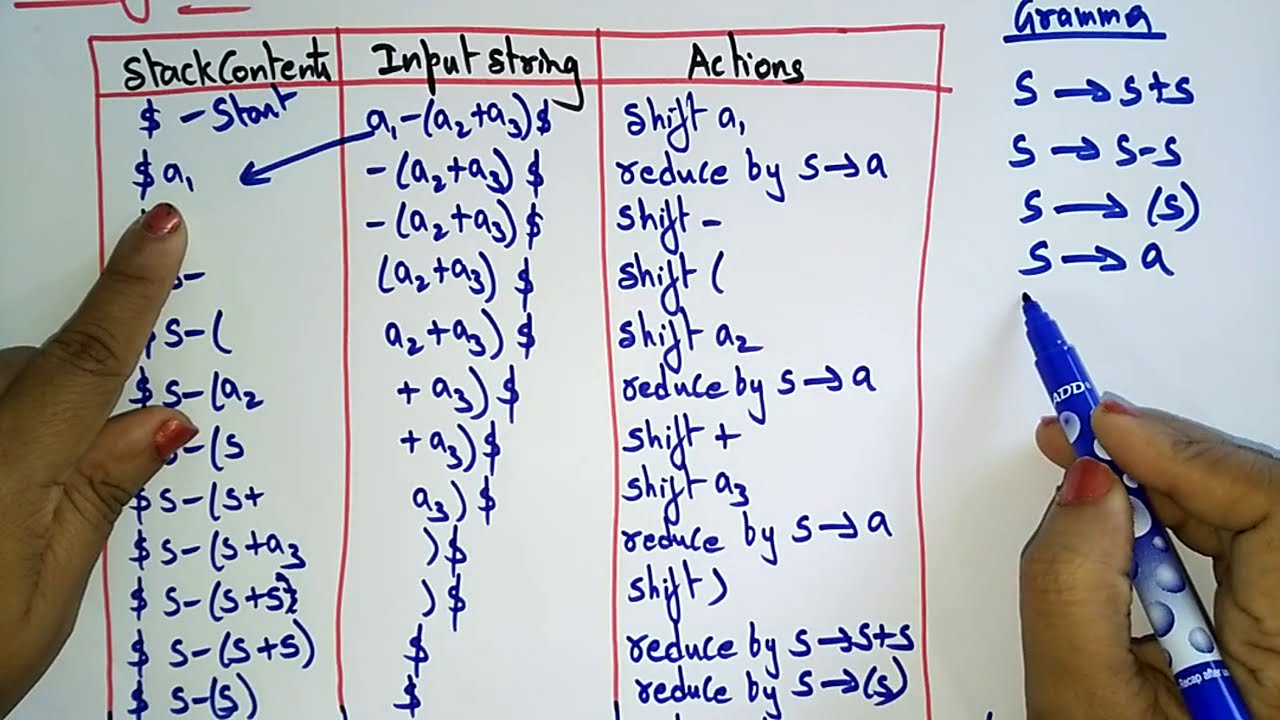 Gramma
Stack Contents Input string Actions
$ - Start a₁-(a₂+a₃)$ Shift a₁
S → S+S
$ a₁ -(a₂+a₃) $ reduce by S→a
S → S-S
-(a₂+a₃) $ Shift -
S → (S)
S- (a₂+a₃) $ Shift (
S → a
$ S-( a₂+a₃) $ Shift a₂
$ S-(a₂ + a₃) $ reduce by S→a
S-(S + a₃) $ Shift +
$ S-(S+ a₃) $ Shift a₃
$ S-(S+a₃ ) $ reduce by S→a
$ S-(S+S ) $ Shift )
$ S-(S+S) $ reduce by S→S+S
$ S-(S) $ reduce by S→(S)
ADD